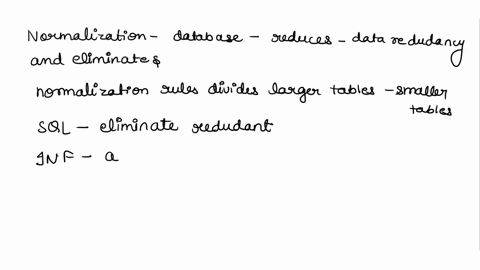 Normalization - database - reduces - data redudancy
and eliminates
normalization rules divides larger tables - smaller
tables
SQL - eliminate redudant
1NF - a